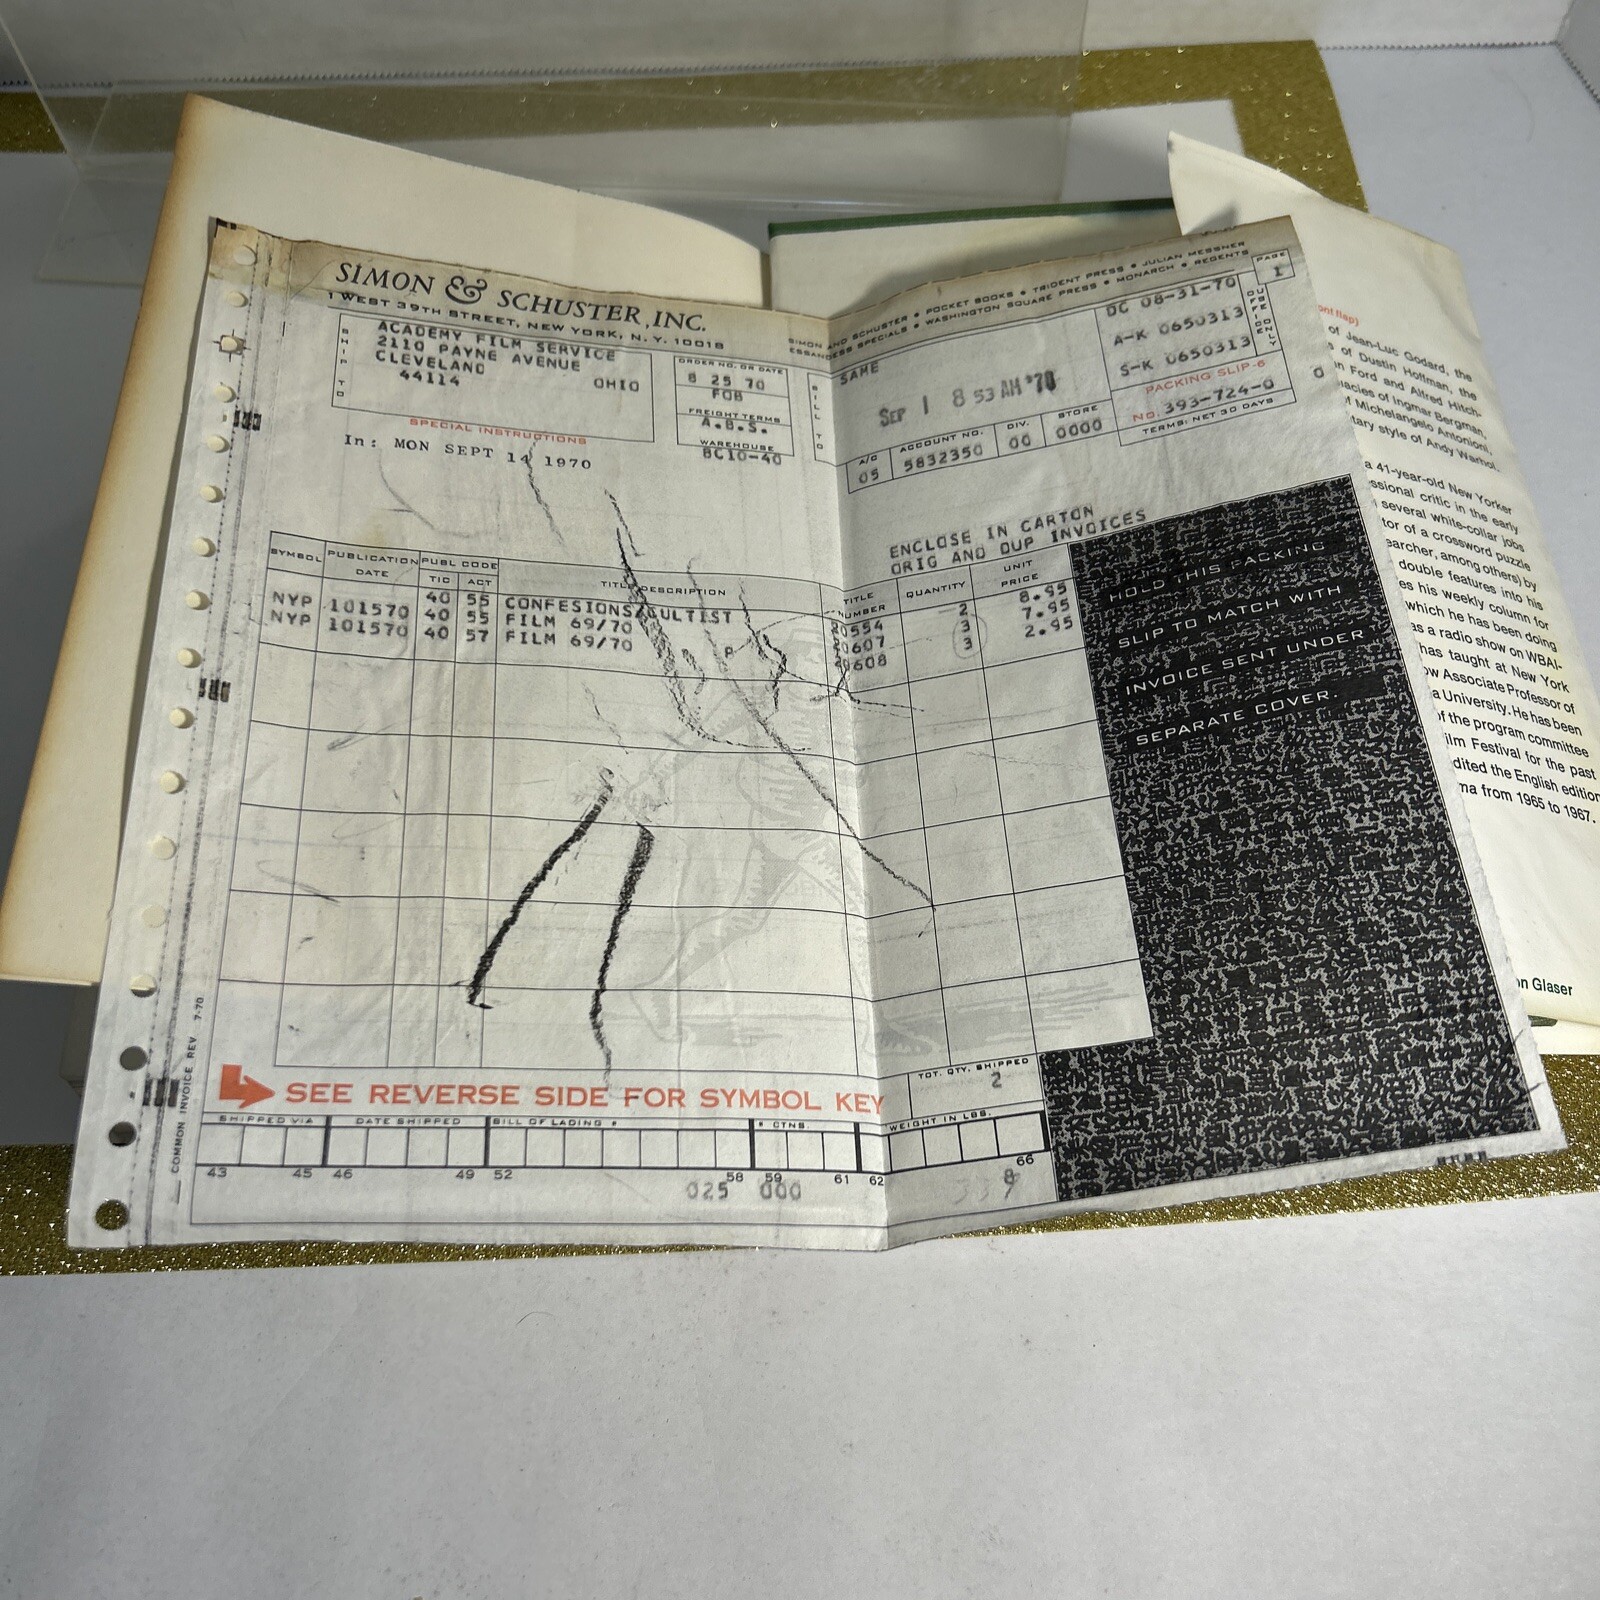 SIMON & SCHUSTER, INC.
1 WEST 39TH STREET, NEW YORK, N. Y. 10018
SIMON AND SCHUSTER • POCKET BOOKS • TRIDENT PRESS • JULIAN MESSNER
ESSANDESS SPECIALS • WASHINGTON SQUARE PRESS • MONARCH • REGENTS
PAGE
1
SHIP TO
ACADEMY FILM SERVICE
2110 PAYNE AVENUE
CLEVELAND
44114 OHIO
ORDER NO. OR DATE
8 25 70
FOB
FREIGHT TERMS
A.B.S.
WAREHOUSE
BC10-40
BILL TO
SAME
SEP 1 8 53 AM '70
DC 08-31-70
A-K 0650313
S-K 0650313
OFFICE USE ONLY
PACKING SLIP-6
NO. 393-724-0
TERMS: NET 30 DAYS
A/C
05
ACCOUNT NO.
5832350
DIV.
00
STORE
0000
SPECIAL INSTRUCTIONS
In: MON SEPT 14 1970
ENCLOSE IN CARTON
ORIG AND DUP INVOICES
SYMBOL PUBLICATION DATE PUBL CODE TIC ACT TITLE DESCRIPTION TITLE NUMBER QUANTITY UNIT PRICE
40 55 CONFESIONS/CULTIST 0554 2 8.95
NYP 101570 40 55 FILM 69/70 0607 3 7.95
NYP 101570 40 57 FILM 69/70 0608 3 2.95
HOLD THIS PACKING
SLIP TO MATCH WITH
INVOICE SENT UNDER
SEPARATE COVER.
TOT. QTY. SHIPPED
2
SEE REVERSE SIDE FOR SYMBOL KEY
SHIPPED VIA DATE SHIPPED BILL OF LADING # # CTNS. WEIGHT IN LBS.
43 45 46 49 52 58 59 61 62 66
025 000
COMMON INVOICE REV 7-70
ont flap)
of Jean-Luc Godard, the
of Dustin Hoffman, the
n Ford and Alfred Hitch-
acies of Ingmar Bergman,
f Michelangelo Antonioni,
tary style of Andy Warhol.
a 41-year-old New Yorker
ssional critic in the early
several white-collar jobs
tor of a crossword puzzle
earcher, among others) by
double features into his
es his weekly column for
which he has been doing
as a radio show on WBAI-
has taught at New York
ow Associate Professor of
a University. He has been
of the program committee
ilm Festival for the past
dited the English edition
ma from 1965 to 1967.
on Glaser